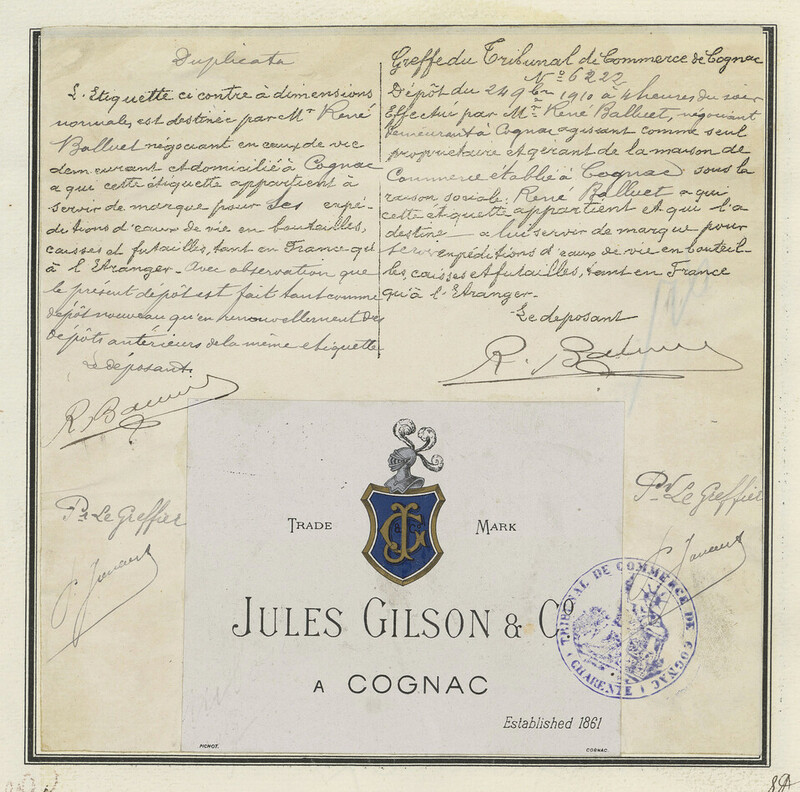 Duplicata
L'Etiquette ci contre à dimensions
normales, est destinée par Mr René
Balluet négociant en eaux de vie
demeurant et domicilié à Cognac
a qui cette étiquette appartient à
servir de marque pour ses expé-
ditions d'eaux de vie en bouteilles,
caisses et futailles, tant en France qu'
à l'Etranger - Avec observation que
le présent dépôt est fait tant comme
dépôt nouveau qu'en renouvellement des
dépôts antérieurs de la même etiquette
Le déposant
Greffe du Tribunal de Commerce de Cognac
No 6222
Dépôt du 24 9bre 1910 à 4 heures du soir
Effectué par Mr René Balluet, négociant
demeurant à Cognac agissant comme seul
propriétaire et gérant de la maison de
Commerce établie à Cognac sous la
raison sociale: René Balluet a qui
cette étiquette appartient et qui l'a
destine a lui servir de marque pour
ses expéditions d'eaux de vie en bouteil-
les, caisses et futailles, tant en France
qu'à l'Etranger-
Le deposant
Pr Le Greffier
Pr Le Greffier
TRADE MARK
JULES GILSON & Co
A COGNAC
Established 1861
PICHOT.
COGNAC.
TRIBUNAL DE COMMERCE DE COGNAC
(CHARENTE)